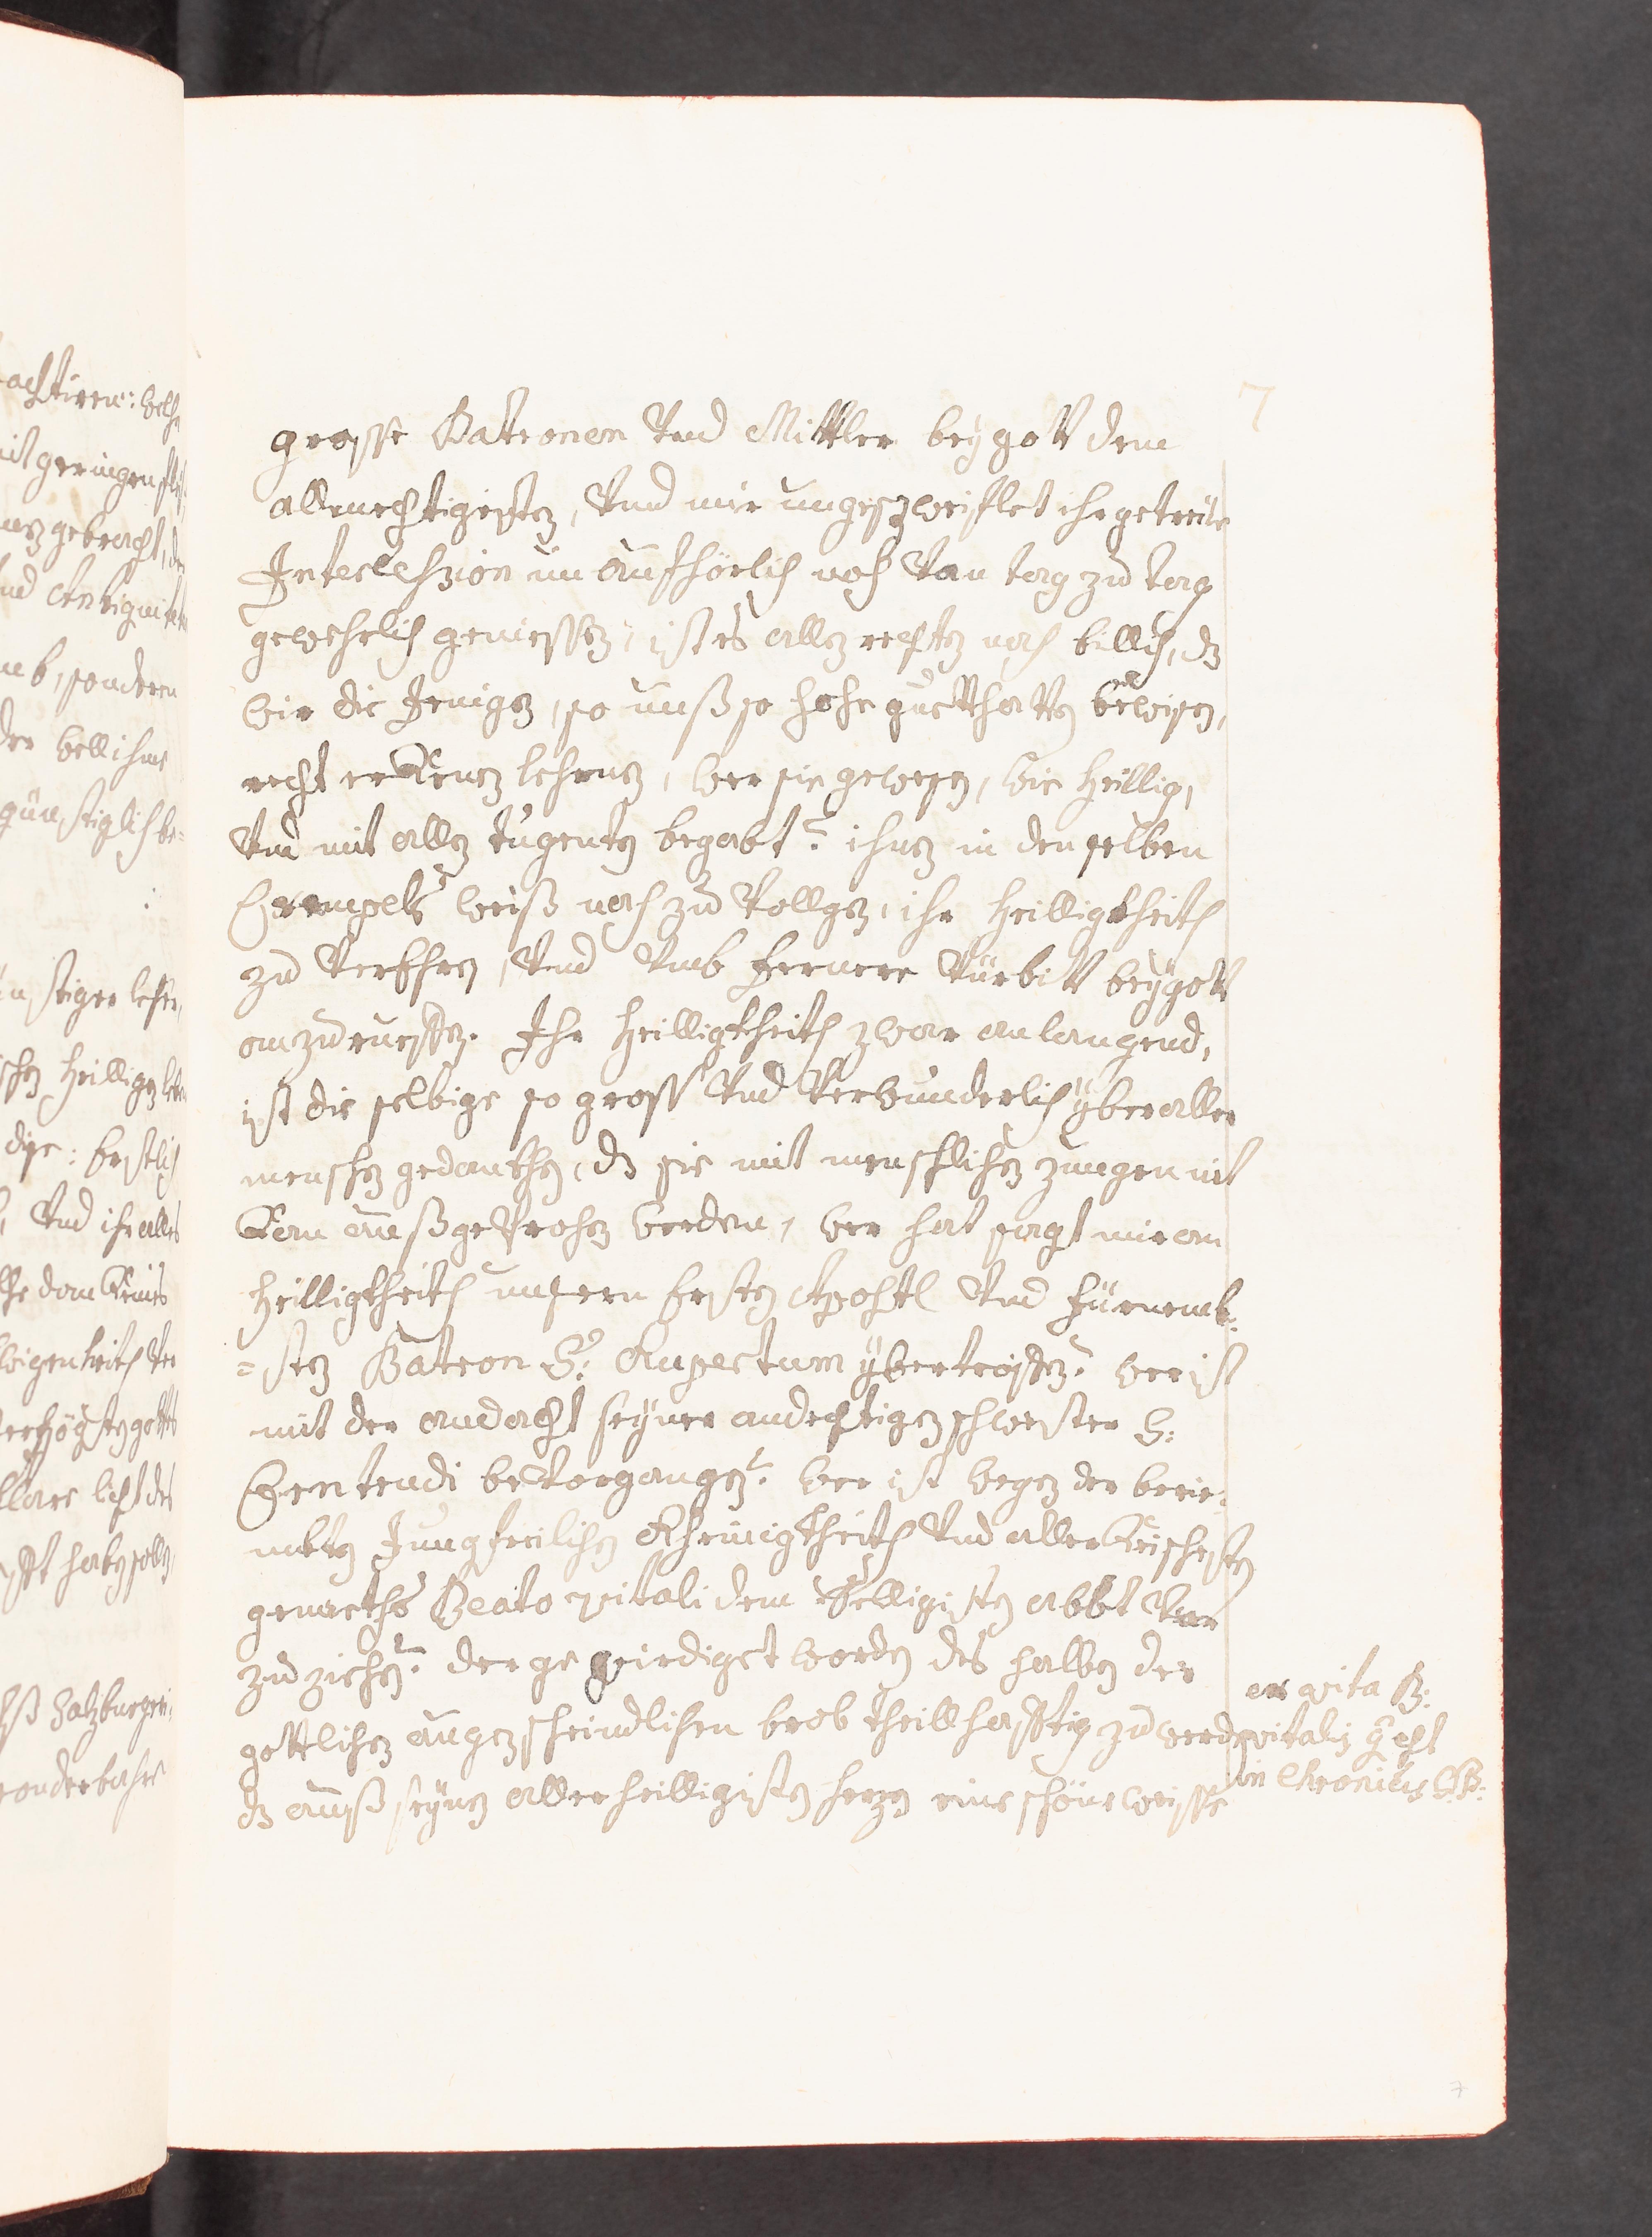 7
grosse Batronen vnd Mittler bey gott dem
allmechtigisten, vnd mir ungeszweiflet ihr getreüe
Intercehsion un aufhörlich noch van tag zu tag
gewehrlich geniessen, ist es allen rechten nach billich, dz
wir die Jenigen, so unß so hohe guettthatten bewisen,
recht erkenen lehrnen, wer sie gewesen, wie heillig,
vnd mit allen tugenten begabt? ihnen in den selben
Exempels weiß nach zu vollgen, ihr heilligkheith
zu verEhren, vnd vmb fernere vürbitt bey gott
anzuruessen. Ihr heilligkheith zwar anlangend,
ist die selbige so gross vnd verwunderlich yber aller
menschen gedankhen, dz sie mit menschlichen zungen nit
kan außgesprohen werden, wer hat sagt mir an
heilligkheith unseren Ersten Apostl vnd fürnemb:
=sten Batron S: Rupertum ybertroffen? wer ist
mit der andacht seyner andechtigen schwester S:
Erentrudi bevorgangen? wer ist wegen der berie:
mbten Jungfreilichen Rheinigkheith vnd aller keischesten
gemueths Beato vitali dem Selligisten abbt vor
zu ziehen? der ge wirdiget worden des halben der
gottlichen augenscheindlichen brob theillhafftig zu werden
dz auß seynen allerheilligisten herzen eine schöne weisse
ex vita B:
vitalis
in Chronicis